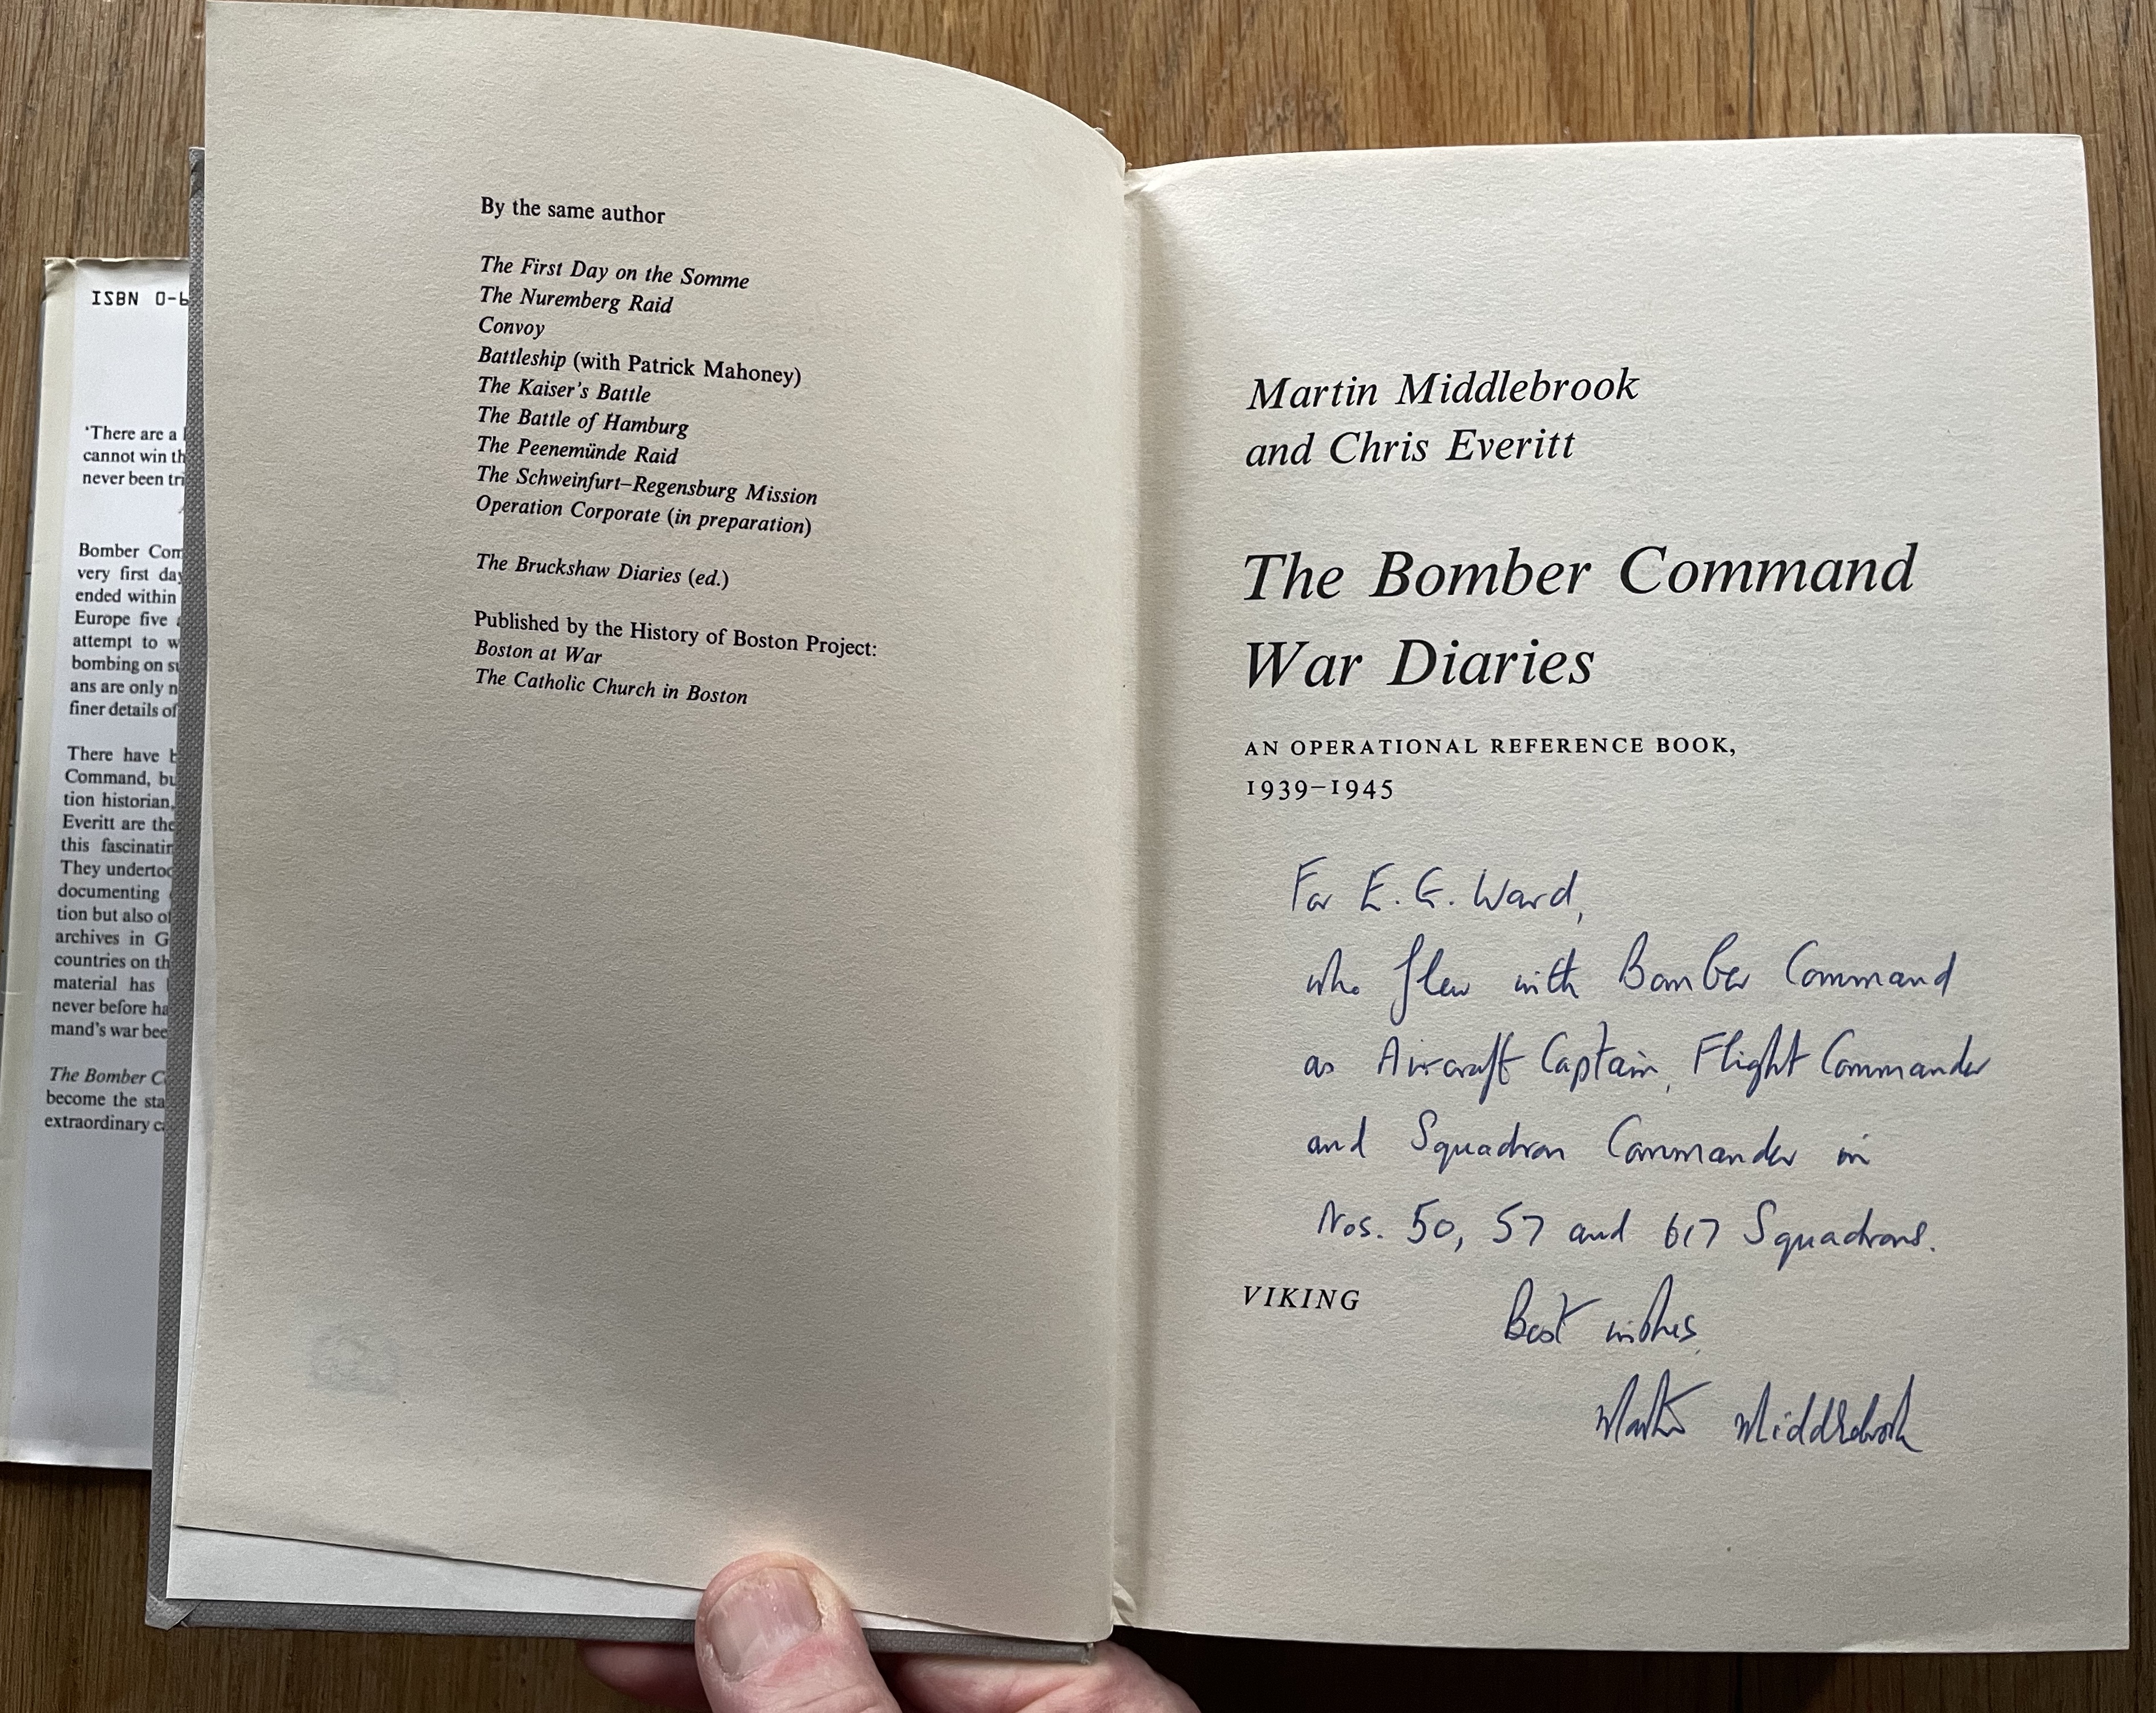 ISBN 0-6
'There are a
cannot win th
never been tri
Bomber Com
very first day
ended within
Europe five
attempt to w
bombing on su
ans are only n
finer details of
There have b
Command, bu
tion historian,
Everitt are the
this fascinatin
They undertoo
documenting
tion but also of
archives in G
countries on th
material has
never before ha
mand's war bee
The Bomber C
become the sta
extraordinary c
By the same author
The First Day on the Somme
The Nuremberg Raid
Convoy
Battleship (with Patrick Mahoney)
The Kaiser's Battle
The Battle of Hamburg
The Peenemünde Raid
The Schweinfurt–Regensburg Mission
Operation Corporate (in preparation)
The Bruckshaw Diaries (ed.)
Published by the History of Boston Project:
Boston at War
The Catholic Church in Boston
Martin Middlebrook
and Chris Everitt
The Bomber Command
War Diaries
AN OPERATIONAL REFERENCE BOOK,
1939–1945
For E. G. Ward,
who flew with Bomber Command
as Aircraft Captain, Flight Commander
and Squadron Commander in
Nos. 50, 57 and 617 Squadrons.
VIKING
Best wishes,
Martin Middlebrook